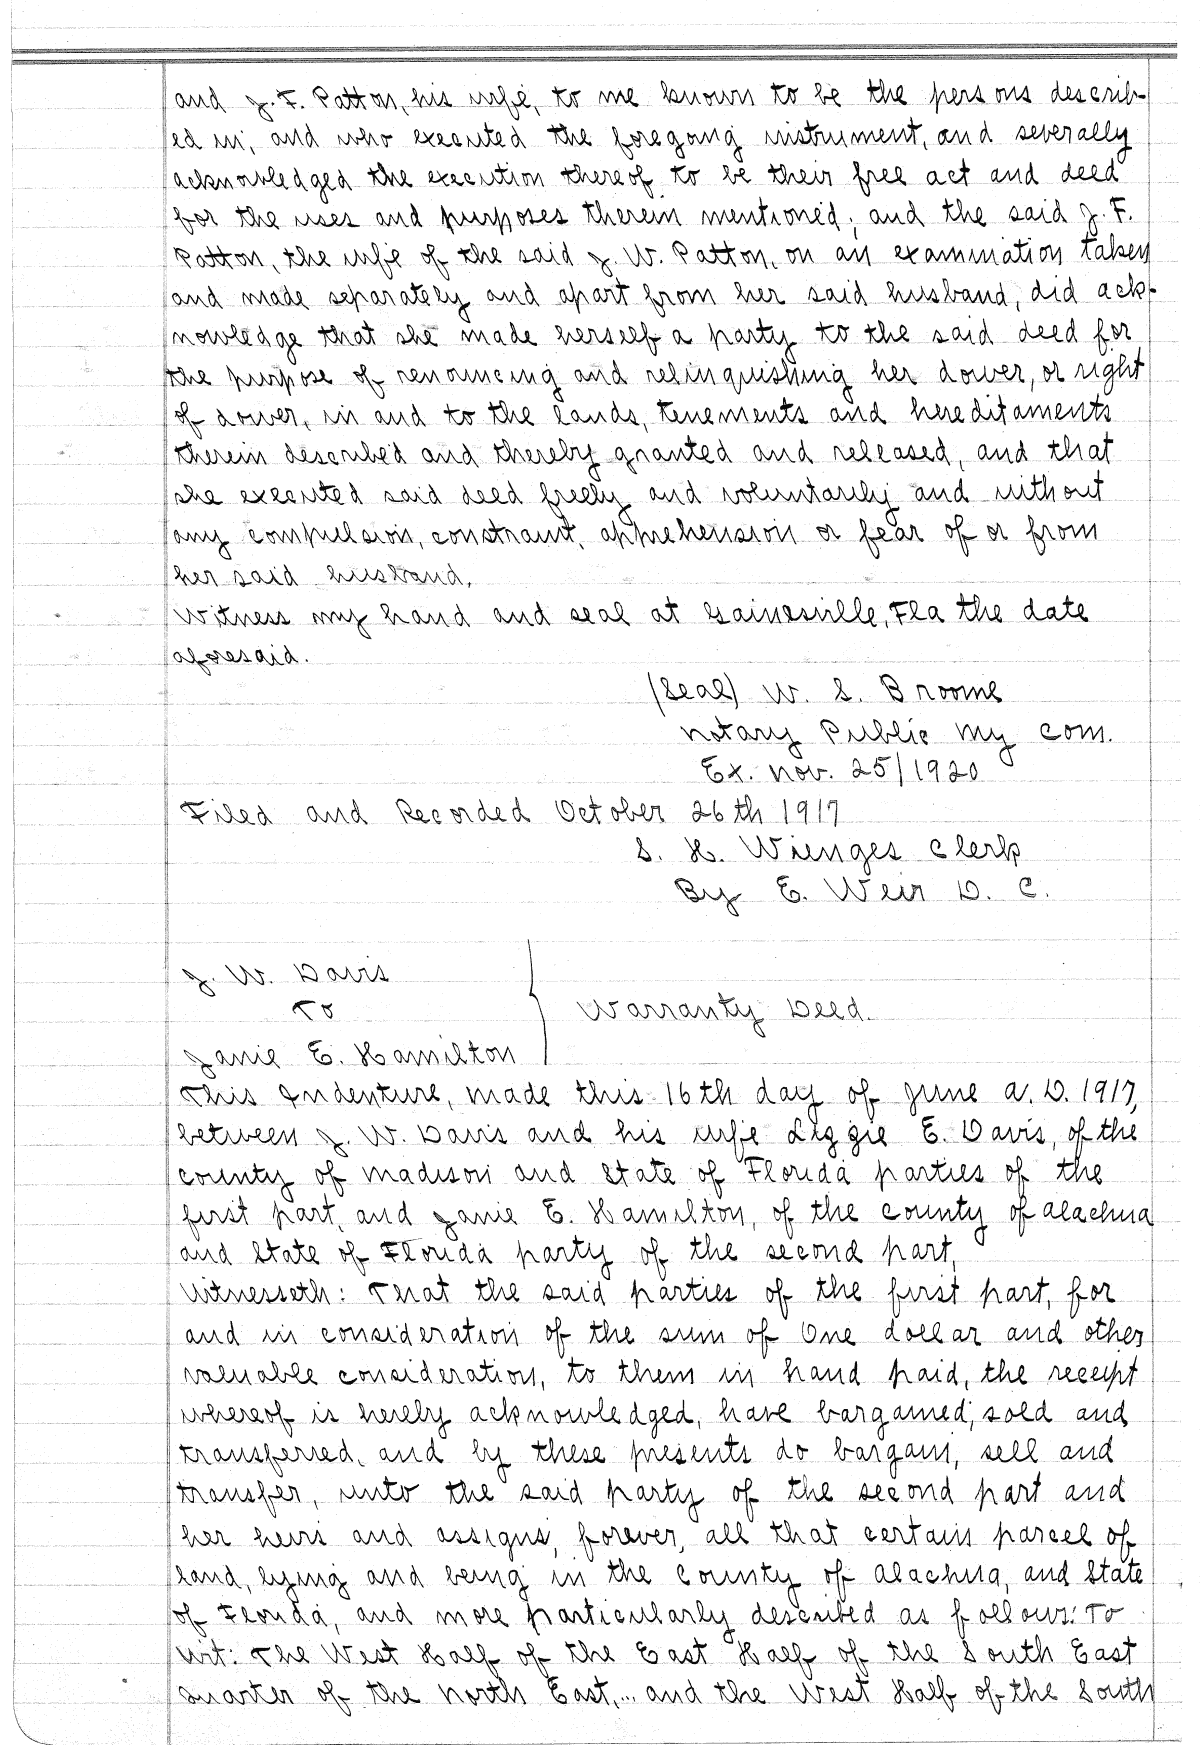 and J. F. Patton, his wife, to me known to be the persons describ-
ed in, and who executed the foregong instrument, and severally
acknowledged the execution thereof to be their free act and deed
for the uses and purposes therein mentioned; and the said J. F.
Patton, the wife of the said J. W. Patton, on an examination taken
and made separately and apart from her said husband, did ack-
nowledge that she made herself a party to the said deed for
the purpose of renouncing and relinquishing her dower, or right
of dower, in and to the lands, tenements and hereditaments
therein described and thereby granted and released, and that
she executed said deed freely and voluntarily and without
any compulsion, constraint, apprehension or fear of or from
her said husband.
Witness my hand and seal at Gainesville, Fla the date
aforesaid.
(Seal) W. S. Broome
Notary Public My com.
Ex. Nov. 25/1920
Filed and Recorded October 26th 1917
S. H. Wienges Clerk
By E. Weir D. C.
J. W. Davis
To
Warranty Deed.
Janie E. Hamilton
This Indenture, made this 16th day of June A. D. 1917,
between J. W. Davis and his wife Lizzie E. Davis, of the
county of Madison and State of Florida parties of the
first part, and Janie E. Hamilton, of the county of Alachua
and State of Florida party of the second part,
Witnesseth: That the said parties of the first part, for
and in consideration of the sum of One dollar and other
valuable consideration, to them in hand paid, the receipt
whereof is hereby acknowledged, have bargained, sold and
transferred, and by these presents do bargain, sell and
transfer, unto the said party of the second part and
her heirs and assigns, forever, all that certain parcel of
land, lying and being in the county of Alachua, and State
of Florida, and more particularly described as follows: To
wit: The West Half of the East Half of the South East
quarter of the North East,... and the West Half of the South